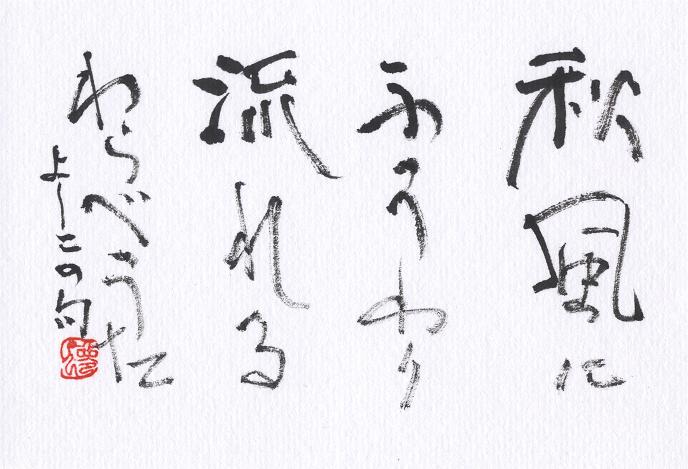 秋風に
ふうわり
流れる
わらべうた
よしこの句